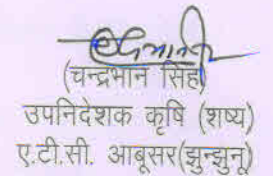 (चन्द्रभान सिंह)
उपनिदेशक कृषि (शष्य)
ए.टी.सी. आबूसर(झुन्झुनू)